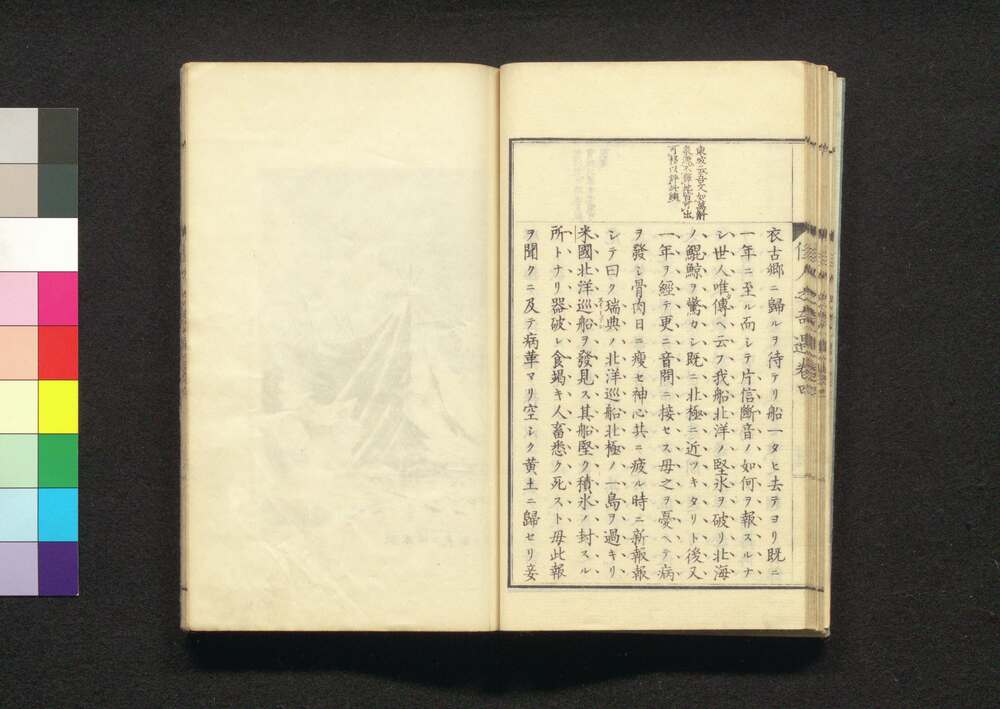 東坡云吾文如萬斛
泉源不擇地皆可出
可移以評此輿
衣古郷ニ歸ルヲ待テリ船一タヒ去テヨリ既ニ
一年ニ至ル而シテ片信斷音ノ如何ヲ報スルナ
シ世人唯傳ヘ云フ我船北洋ノ堅氷ヲ破リ北海
ノ鯤鯨ヲ驚カシ既ニ北極ニ近ツキタリト後又
一年ヲ經テ更ニ音問ニ接セス母之ヲ憂ヘテ病
ヲ發シ骨肉日ニ瘦セ神心共ニ疲ル時ニ新報報
シテ曰ク瑞典ノ北洋巡船北極ノ一島ヲ過キリ
米國北洋巡船ヲ發見ス其船堅ク積氷ノ封スル
所トナリ器破レ食竭キ人畜悉ク死スト母此報
ヲ聞クニ及テ病革マリ空シク黄土ニ歸セリ妾
佳人之奇遇卷四